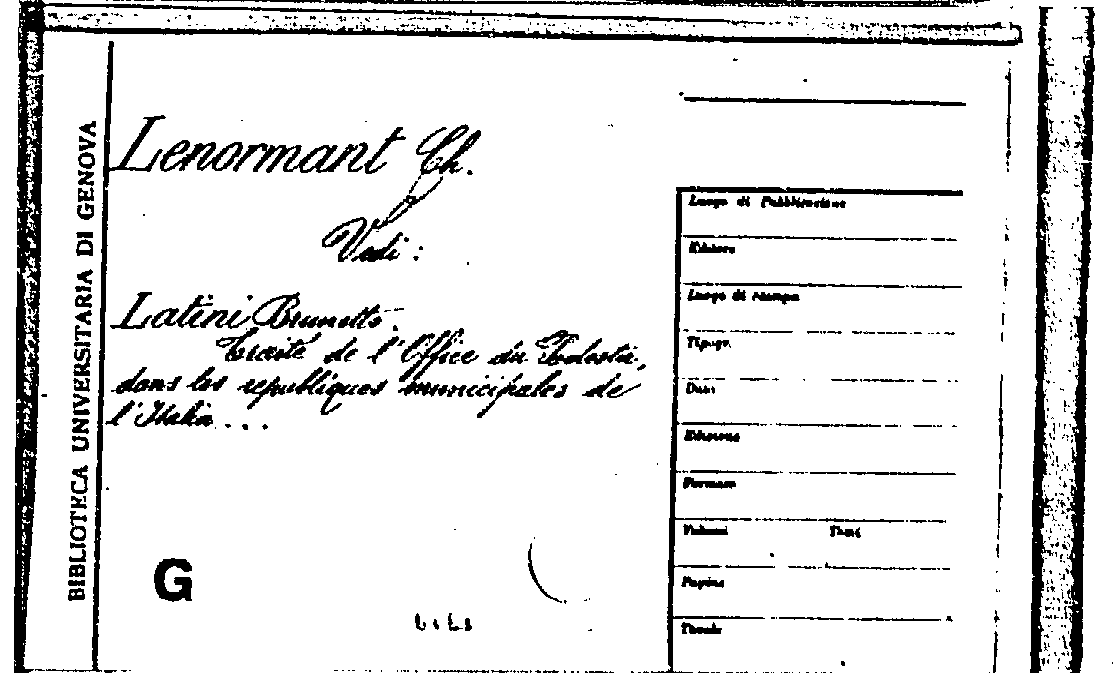 BIBLIOTECA UNIVERSITARIA DI GENOVA
Lenormant Ch.
Vedi:
Latini Brunetto.
Traité de l'Office du Podestà,
dans les republiques municipales de
l'Italia...
G
Luogo di Pubblicazione
Editore
Luogo di stampa
Tipogr.
Data
Edizione
Formato
Volumi Tomi
Pagine
Tavole